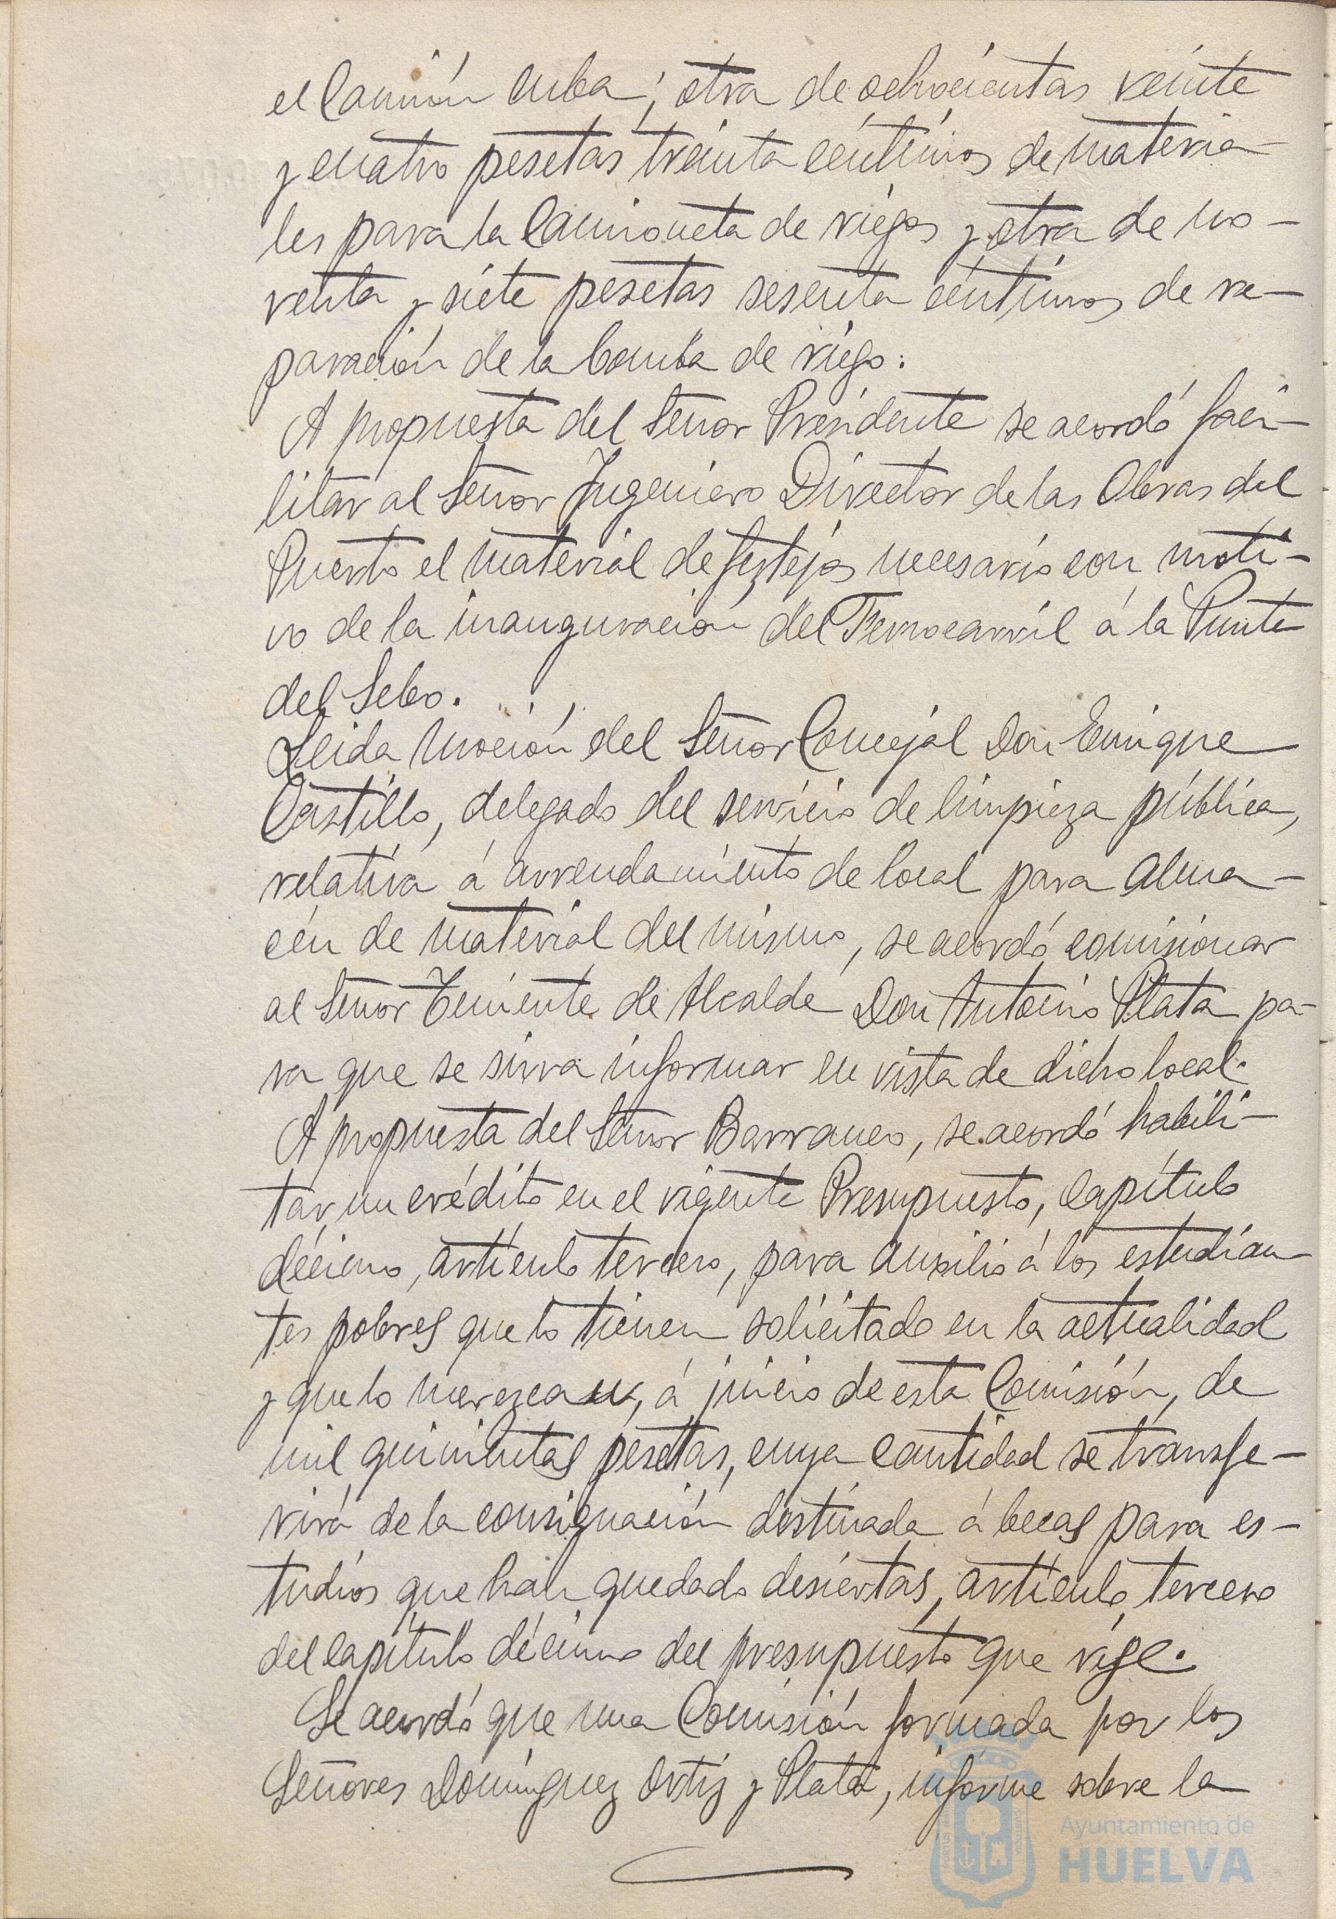 el Camión Cuba; otra de ochocientas veinte
y cuatro pesetas treinta céntimos de materia-
les para la Camioneta de riegos y otra de no-
venta y siete pesetas sesenta céntimos de re-
paración de la bomba de riego.
A propuesta del Señor Presidente se acordó faci-
litar al Señor Ingeniero Director de las Obras del
Puerto el material de festejos necesario con moti-
vo de la inauguración del Ferrocarril á la Punta
del Sebo.
Leida moción del Señor Concejal Don Enrique
Castillo, delegado del servicio de limpieza pública,
relativa á arrendamiento de local para alma-
cén de material del mismo, se acordó comisionar
al Señor Teniente de Alcalde Don Antonio Plata pa-
ra que se sirva informar en vista de dicho local.
A propuesta del Señor Barranco, se acordó habili-
tar un crédito en el vigente Presupuesto, Capítulo
décimo, artículo tercero, para auxilio á los estudian-
tes pobres que lo tienen solicitado en la actualidad
y que lo merezcan, á juicio de esta Comisión, de
mil quinientas pesetas, cuya cantidad se transfe-
rirá de la consignación destinada á becas para es-
tudios que han quedado desiertas, artículo tercero
del capítulo décimo del presupuesto que rige.
Se acordó que una Comisión formada por los
Señores Domínguez Ortiz y Plata, informe sobre la
Ayuntamiento de
HUELVA